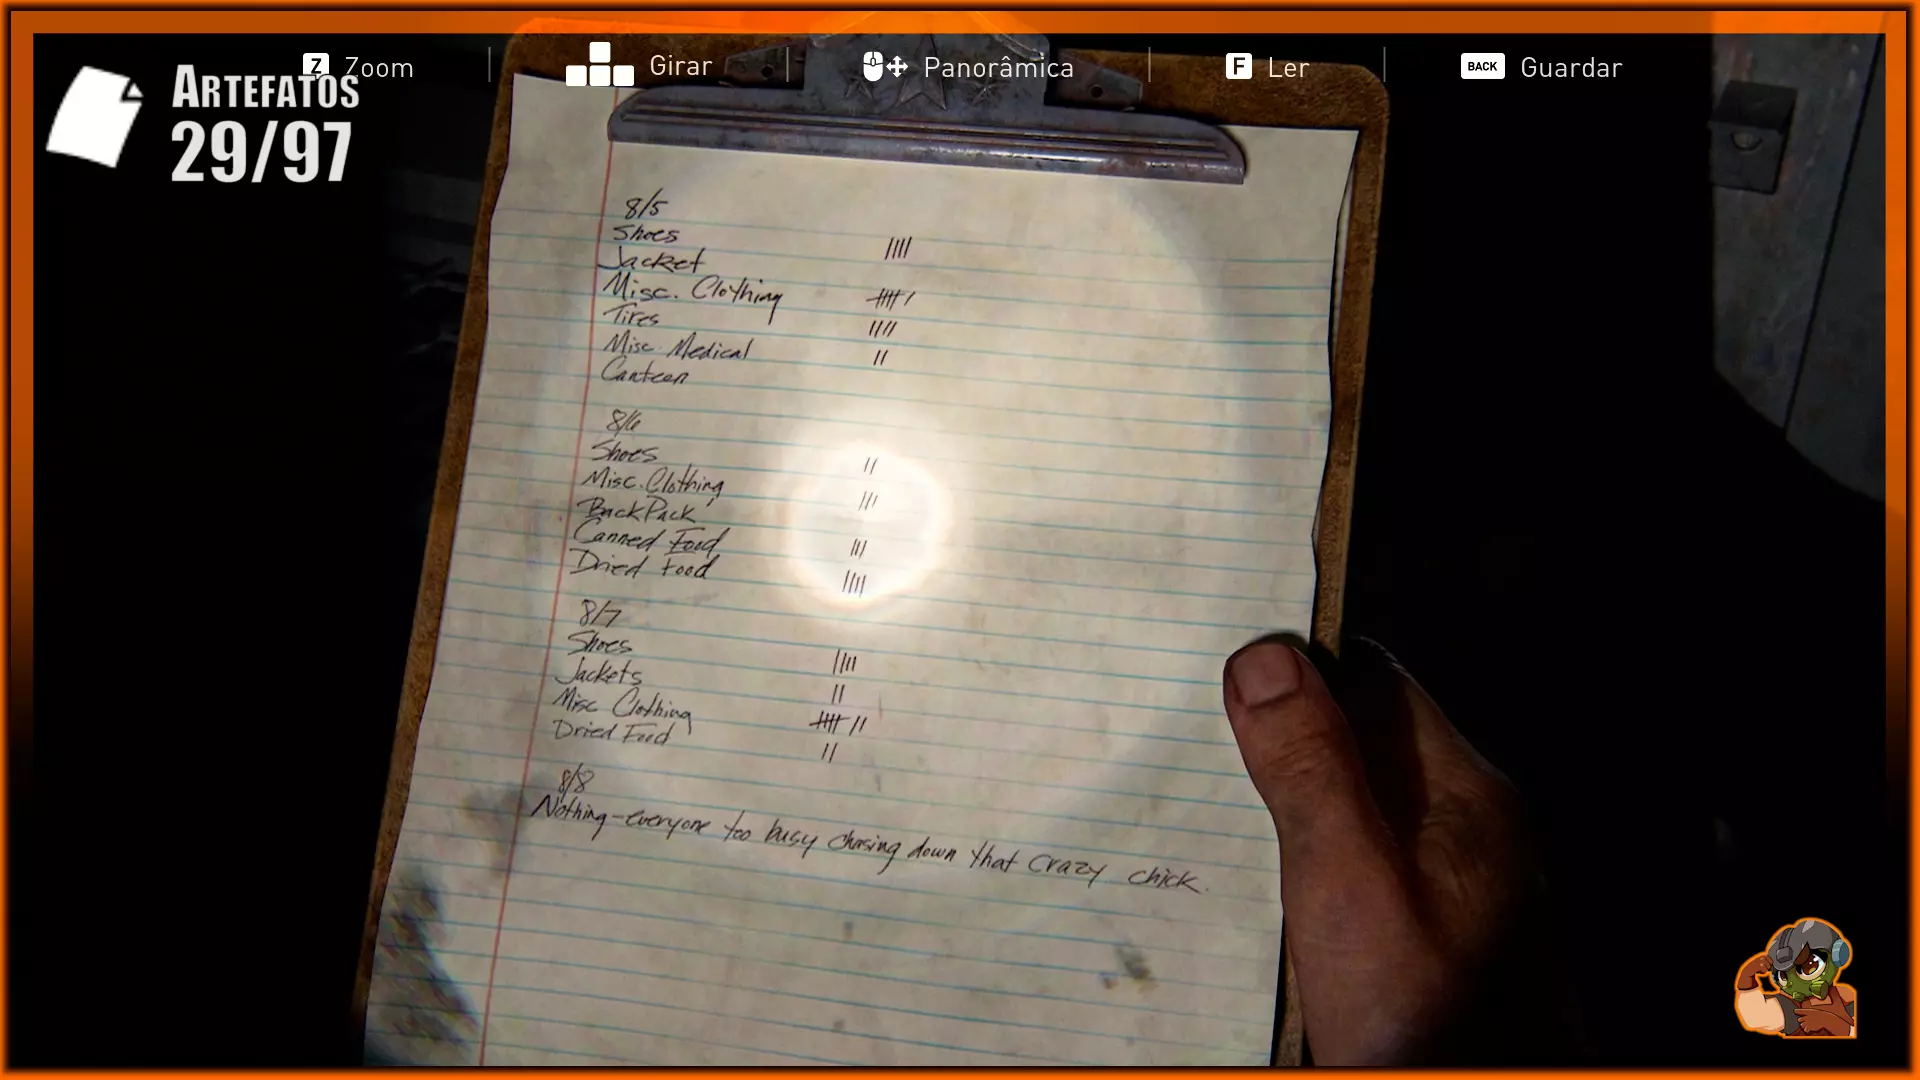 Z Zoom
Girar
Panorâmica
F Ler
BACK Guardar
ARTEFATOS
29/97
8/5
Shoes
Jacket
Misc. Clothing
Tires
Misc. Medical
Canteen
8/6
Shoes
Misc. Clothing
BackPack
Canned Food
Dried Food
8/7
Shoes
Jackets
Misc Clothing
Dried Food
8/8
Nothing - everyone too busy chasing down that crazy chick.